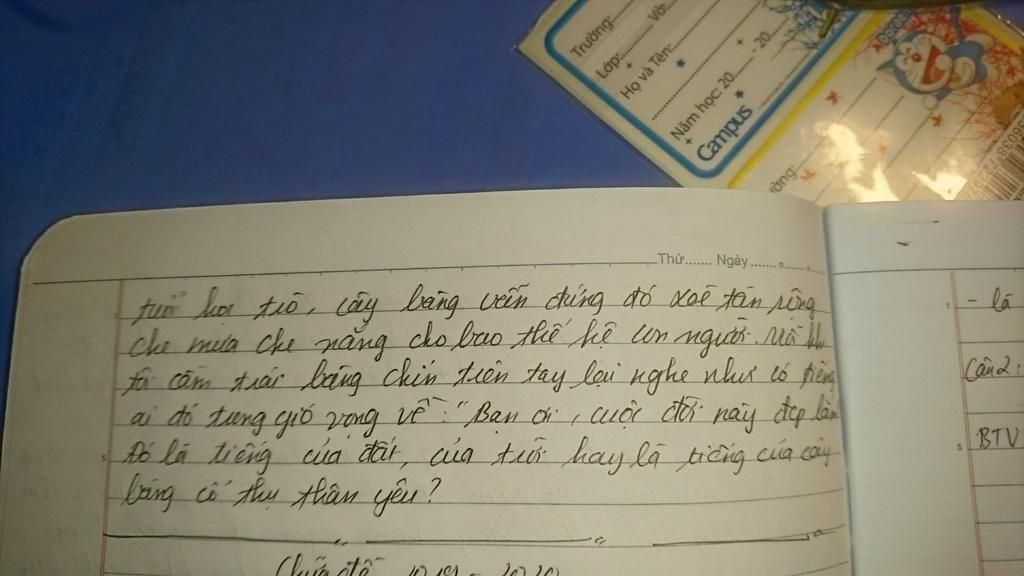 Trường:
Lớp: Vở:
Họ và Tên:
Năm học: 20 - 20
Campus
Thứ....... Ngày
tuổi học trò, cây bàng vẫn đứng đó xoè tán rộng
che mưa che nắng cho bao thế hệ con người. Mỗi khi
ta cầm trái bàng chín trên tay lại nghe như có tiếng
ai đó trong gió vọng về: "Bạn ơi, cuộc đời này đẹp lắm
Đó là tiếng của đất, của trời hay là tiếng của cây
bàng cổ thụ thân yêu?
Chữa đề 2019 - 2020
- là
Câu 2:
BTV